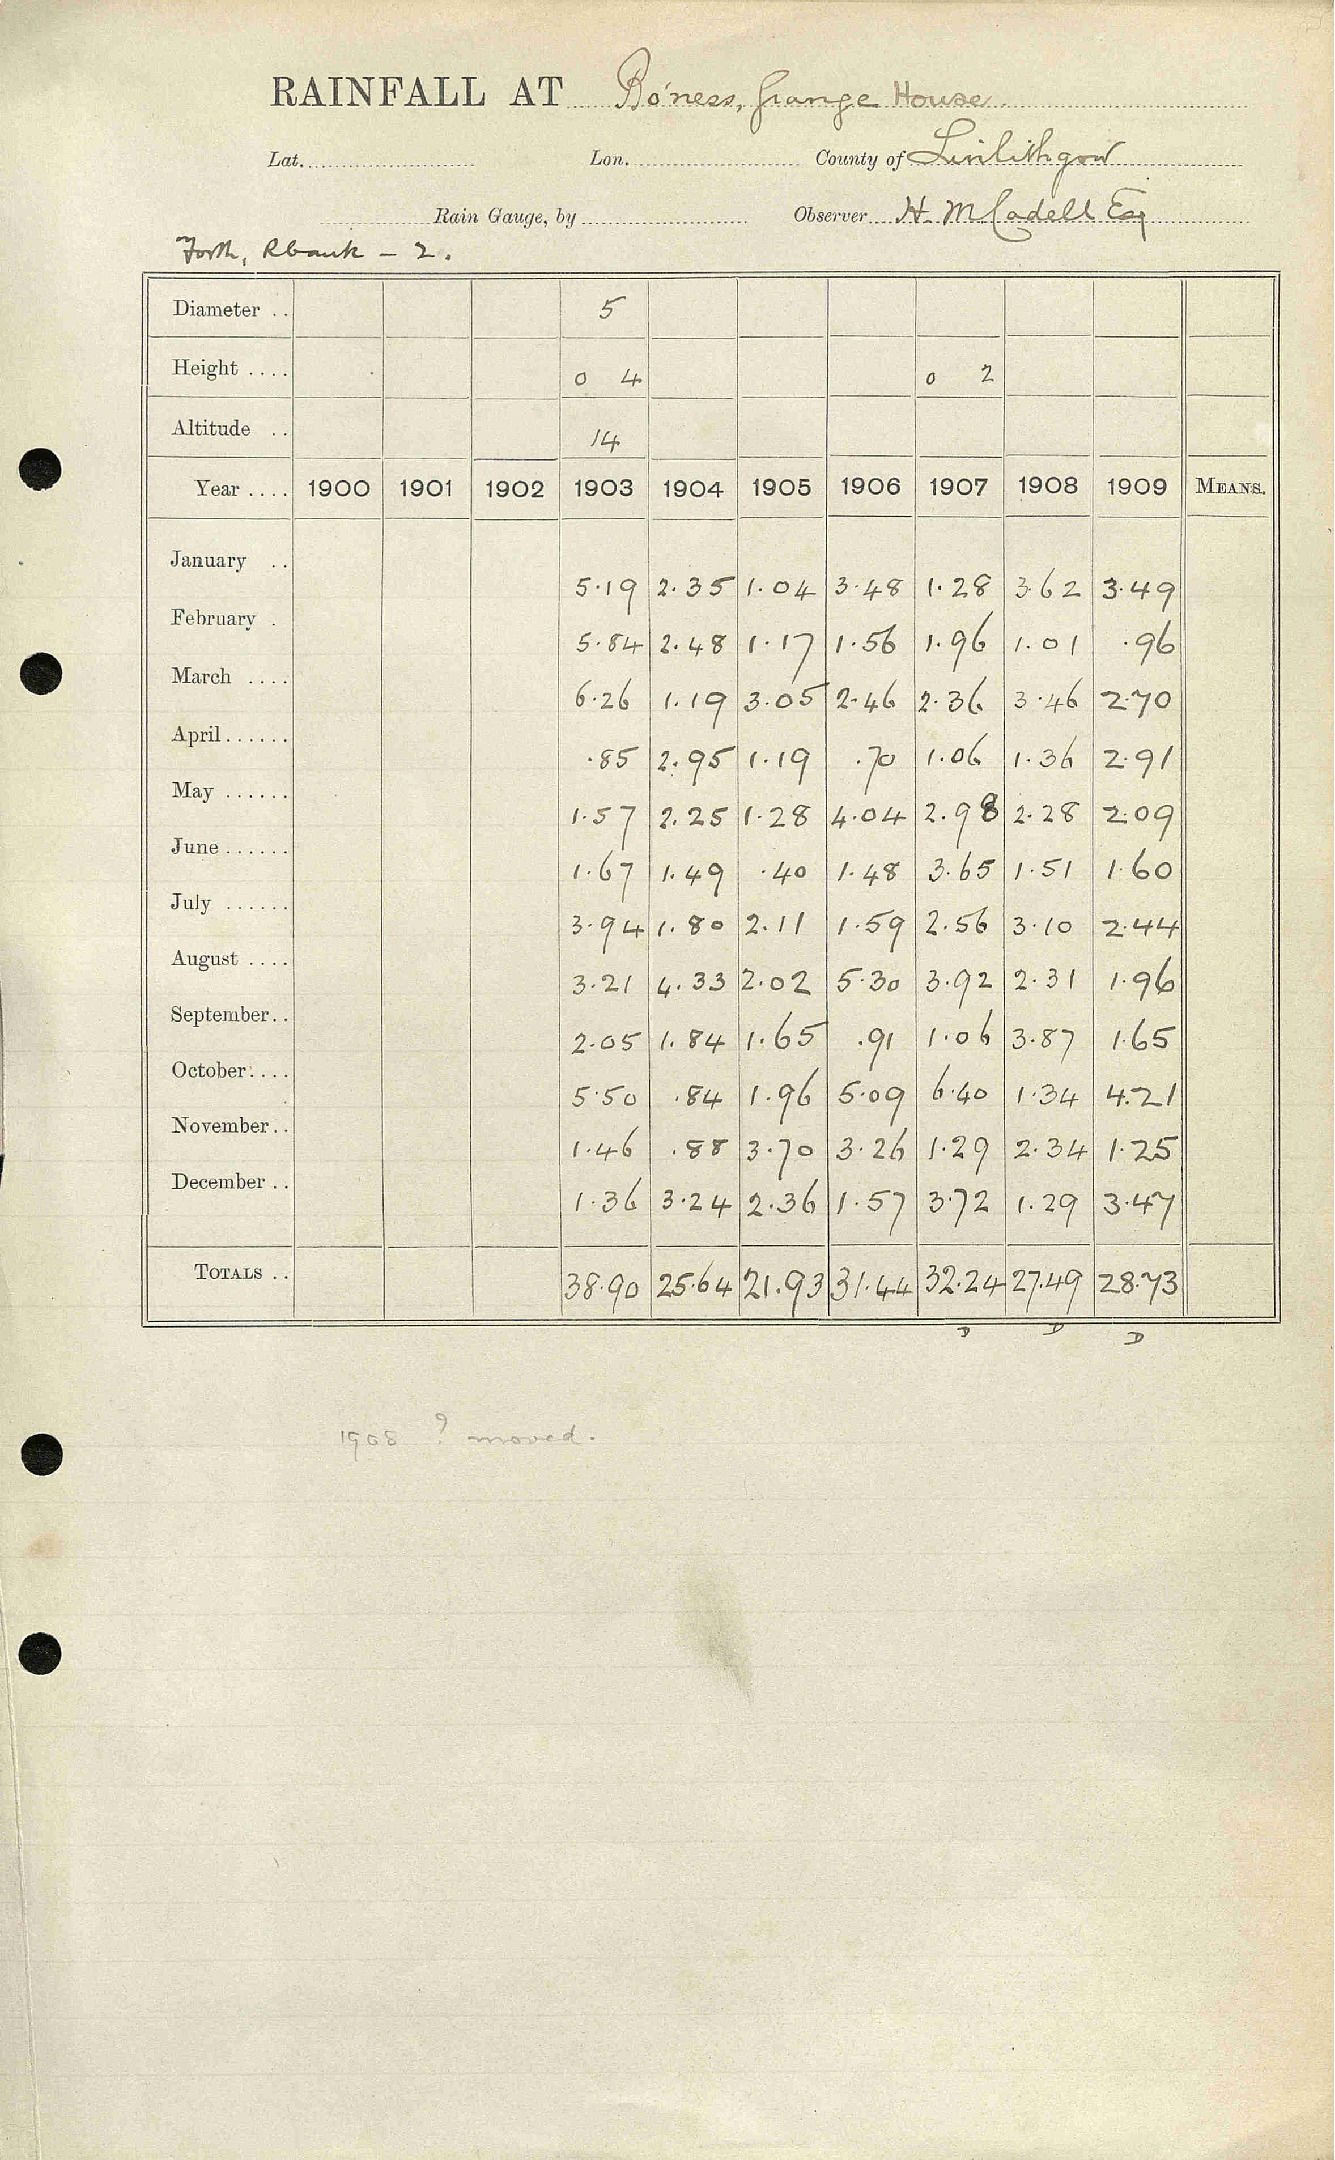 RAINFALL AT Bo'ness, Grange House
Lat. Lon. County of Linlithgow
Rain Gauge, by Observer H. M Cadell Esq
Forth, R bank - 2.
Diameter .. 5
Height .... 0 4 0 2
Altitude .. 14
Year .... 1900 1901 1902 1903 1904 1905 1906 1907 1908 1909 MEANS.
January .. 5.19 2.35 1.04 3.48 1.28 3.62 3.49
February . 5.84 2.48 1.17 1.56 1.96 1.01 .96
March .... 6.26 1.19 3.05 2.46 2.36 3.46 2.70
April...... .85 2.95 1.19 .70 1.06 1.36 2.91
May ...... 1.57 2.25 1.28 4.04 2.98 2.28 2.09
June ...... 1.67 1.49 .40 1.48 3.65 1.51 1.60
July ...... 3.94 1.80 2.11 1.59 2.56 3.10 2.44
August .... 3.21 4.33 2.02 5.30 3.92 2.31 1.96
September.. 2.05 1.84 1.65 .91 1.06 3.87 1.65
October.... 5.50 .84 1.96 5.09 6.40 1.34 4.21
November.. 1.46 .88 3.70 3.26 1.29 2.34 1.25
December .. 1.36 3.24 2.36 1.57 3.72 1.29 3.47
TOTALS .. 38.90 25.64 21.93 31.44 32.24 27.49 28.73
D D D
1908 ? moved.